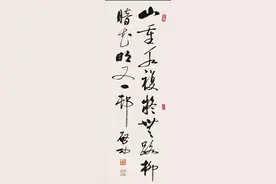 山重水複疑無路柳
暗花明又一邨 啓功